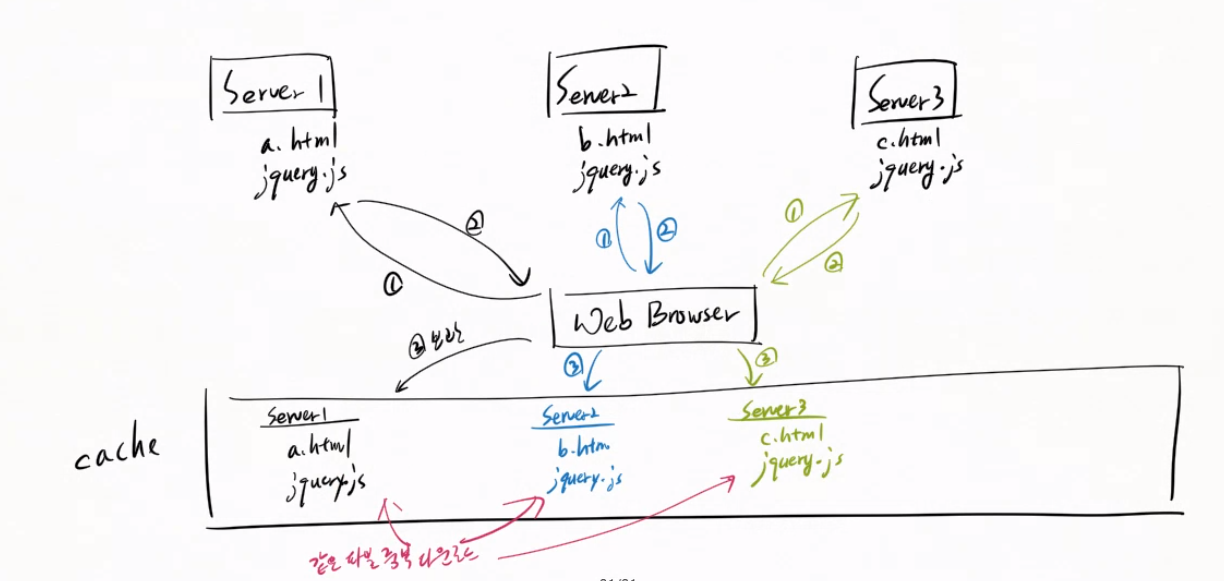 Server 1
a.html
jquery.js
Server2
b.html
jquery.js
Server3
c.html
jquery.js
②
①
①
②
①
②
Web Browser
③ 보관
③
③
cache
Server1
a.html
jquery.js
Server2
b.htm
jquery.js
Server3
c.html
jquery.js
같은 파일 중복 다운로드